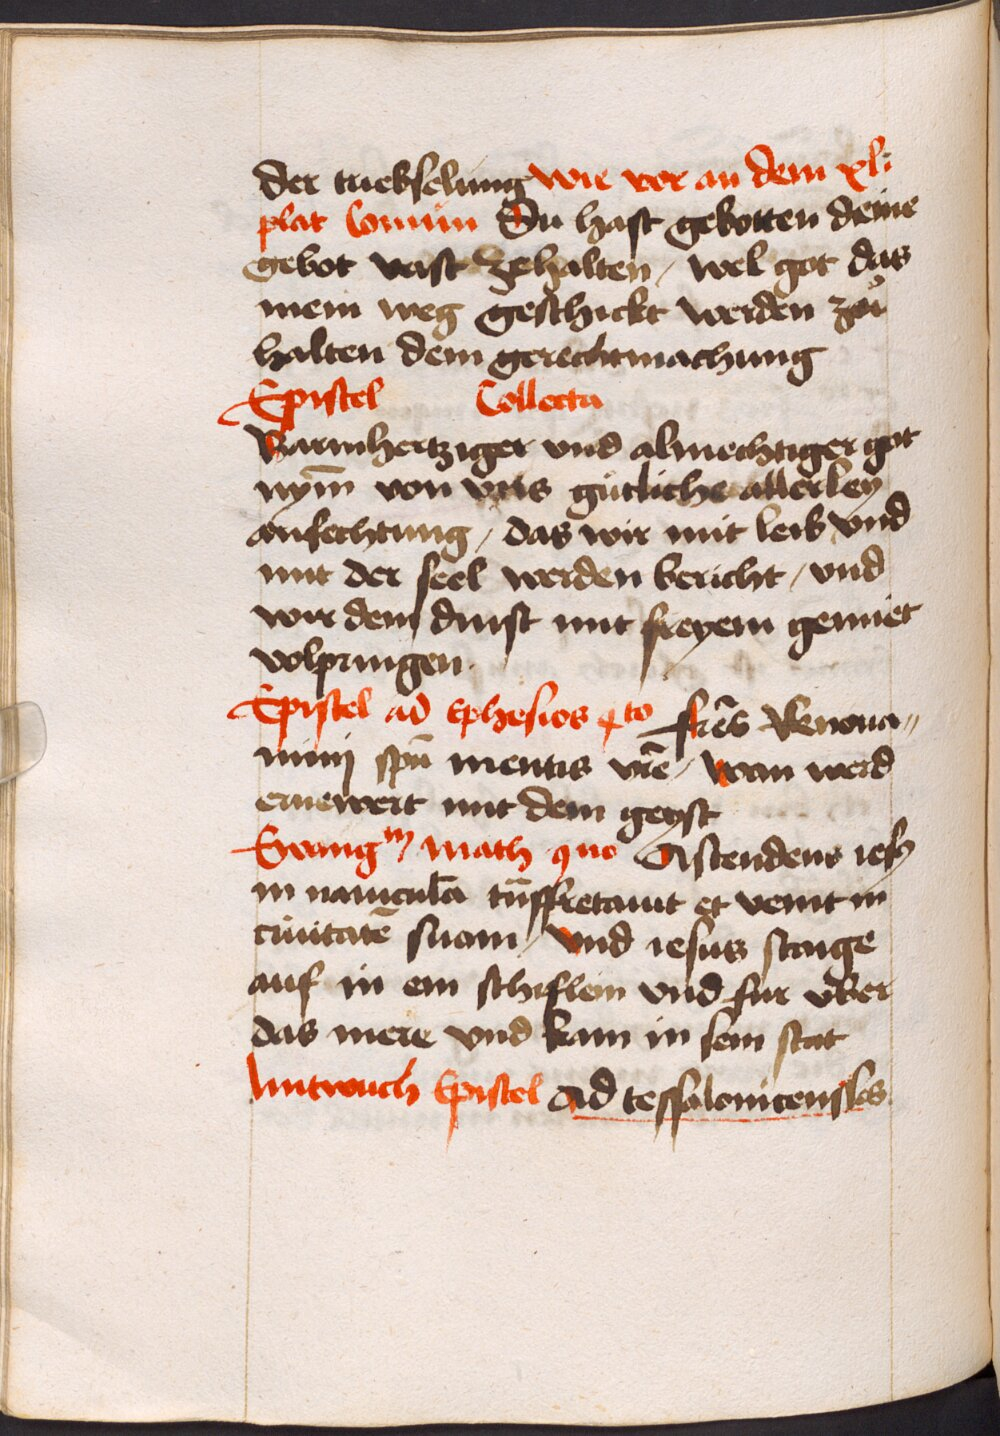 der trubselung wie vor an dem xli
plat Comun Du hast gebotten deine
gebot vast zehalten / wel got das
mein weg geschickt werden zů
halten dein gerechtmachung
Epistel Collecta
Barmhertziger vnd almechtiger got
nym̄ von vns gutliche allerley
anfechtung / das wir mit leib vnd
mit der seel werden bericht / vnd
wir dem dinst mit freyem gemüet
volpringen.
Epistel ad Ephesios 4to fr̄es Renoua„
mini spū mentis vr̄e / wan werd
ernewert mit dem geyst
Ewangm Math 9no Ascendens iesꝫ
in nauicul̄a tn̄sfretauit et venit in
ciuitatē suam / vnd iesus staige
auf in ein schiflein vnd fur vber
das mere vnd kam in sein stat
Mitwuch Epistel ad tessalonicenses